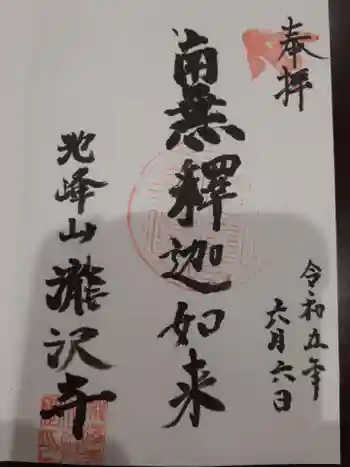 奉拝
令和五年
六月六日
南無釋迦如来
兜峰山
瀧沢寺